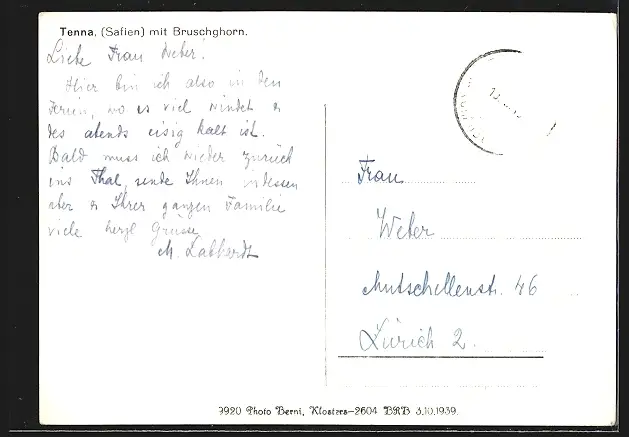 Tenna, (Safien) mit Bruschghorn.
Liebe Frau Weber!
Hier bin ich also in den
Ferien, wo es viel windet &
des abends eisig kalt ist.
Bald muss ich wieder zurück
ins Thal, sende Ihnen indessen
aber & Ihrer ganzen Familie
viele herzl Grüsse
M. Labhardt
Frau
Weber
Mutschellenstr. 46
Zürich 2.
9920 Photo Berni, Klosters-2604 BRB 3.10.1939.